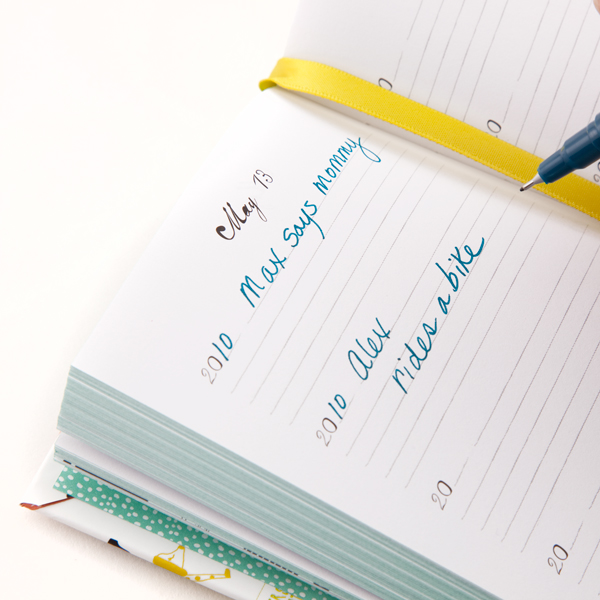 May 13
2010 Max says mommy
2010 Alex
rides a bike
20
20